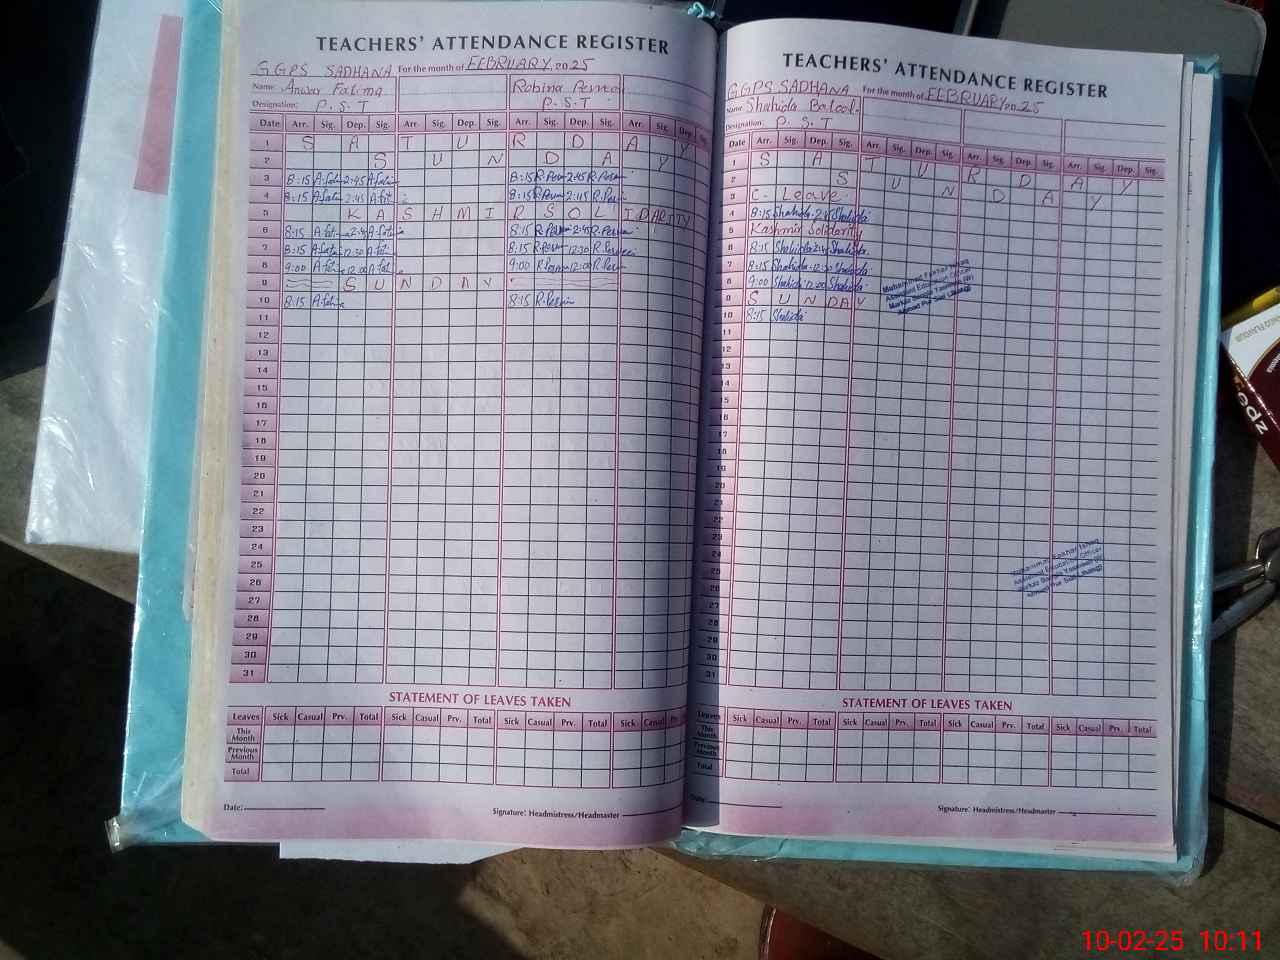 TEACHERS' ATTENDANCE REGISTER
GGPS SADHANA For the month of FEBRUARY, 2025
Name: Anwar Fatima Robina Perveen
Designation: P.S.T P.S.T
Date Arr. Sig. Dep. Sig. Arr. Sig. Dep. Sig. Arr. Sig. Dep. Sig. Arr. Sig. Dep. Sig.
1 S A T U R D A Y
2 S U N D A Y
3 8:15 A.fatima 2:45 A.fatima 8:15 R.Perveen 2:45 R.Perveen
4 8:15 A.fatima 2:45 A.fatima 8:15 R.Perveen 2:45 R.Perveen
5 KASHMIR SOLIDARITY
6 8:15 A.fatima 2:45 A.fatima 8:15 R.Perveen 2:45 R.Perveen
7 8:15 A.fatima 12:30 A.fatima 8:15 R.Perveen 12:30 R.Perveen
8 9:00 A.fatima 12:00 A.fatima 9:00 R.Perveen 12:00 R.Perveen
9 S U N D A Y
10 8:15 A.fatima 8:15 R.Perveen
11
12
13
14
15
16
17
18
19
20
21
22
23
24
25
26
27
28
29
30
31
STATEMENT OF LEAVES TAKEN
Leaves Sick Casual Prv. Total Sick Casual Prv. Total Sick Casual Prv. Total Sick Casual Prv.
This Month
Previous Month
Total
Date: Signature: Headmistress/Headmaster
TEACHERS' ATTENDANCE REGISTER
GGPS SADHANA For the month of FEBRUARY 2025
Name Shahida Batool
Designation: P.S.T
Date Arr. Sig. Dep. Sig. Arr. Sig. Dep. Sig. Arr. Sig. Dep. Sig. Arr. Sig. Dep. Sig.
1 S A T U R D A Y
2 S U N D A Y
3 C- Leave
4 8:15 Shahida 2:45 Shahida
5 Kashmir Solidarity
6 8:15 Shahida 2:45 Shahida
7 8:15 Shahida 12:30 Shahida
8 9:00 Shahida 12:00 Shahida
9 S U N D A Y
10 8:15 Shahida
11
12
13
14
15
16
17
18
19
20
21
22
23
24
25
26
27
28
29
30
31
Assistant Education Officer
STATEMENT OF LEAVES TAKEN
Leaves Sick Casual Prv. Total Sick Casual Prv. Total Sick Casual Prv. Total Sick Casual Prv. Total
This Month
Previous Month
Total
Date: Signature: Headmistress/Headmaster
10-02-25 10:11